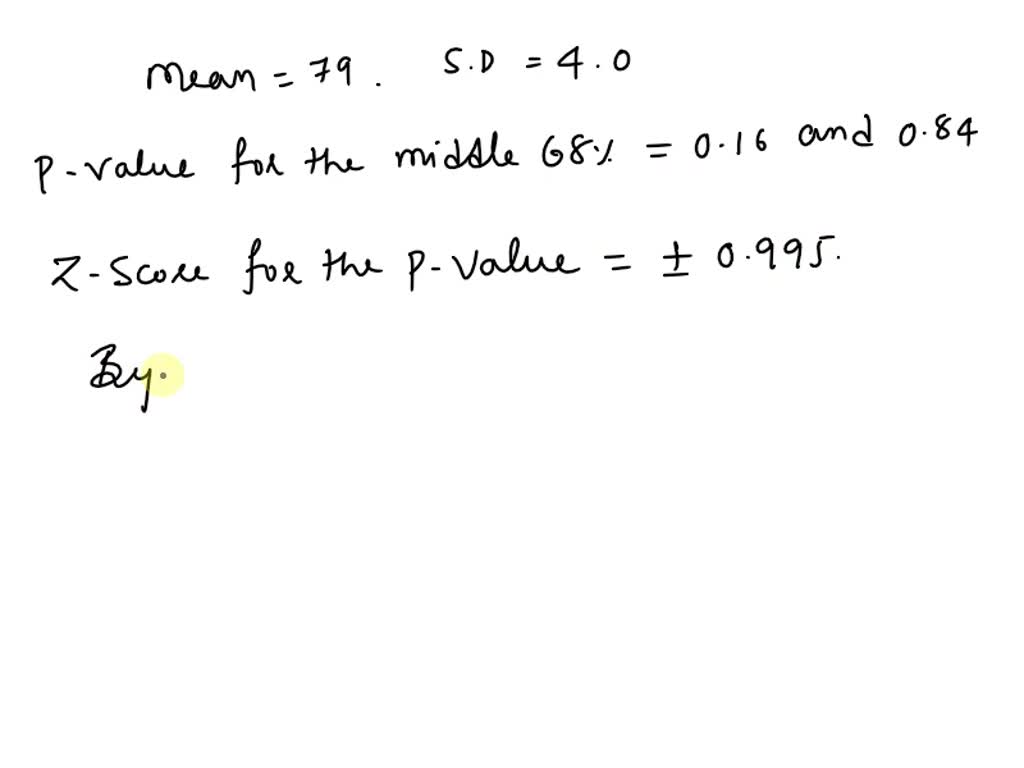 Mean = 79. S.D = 4.0
P-value for the middle 68% = 0.16 and 0.84
Z-Score for the P-value = ± 0.995.
By.